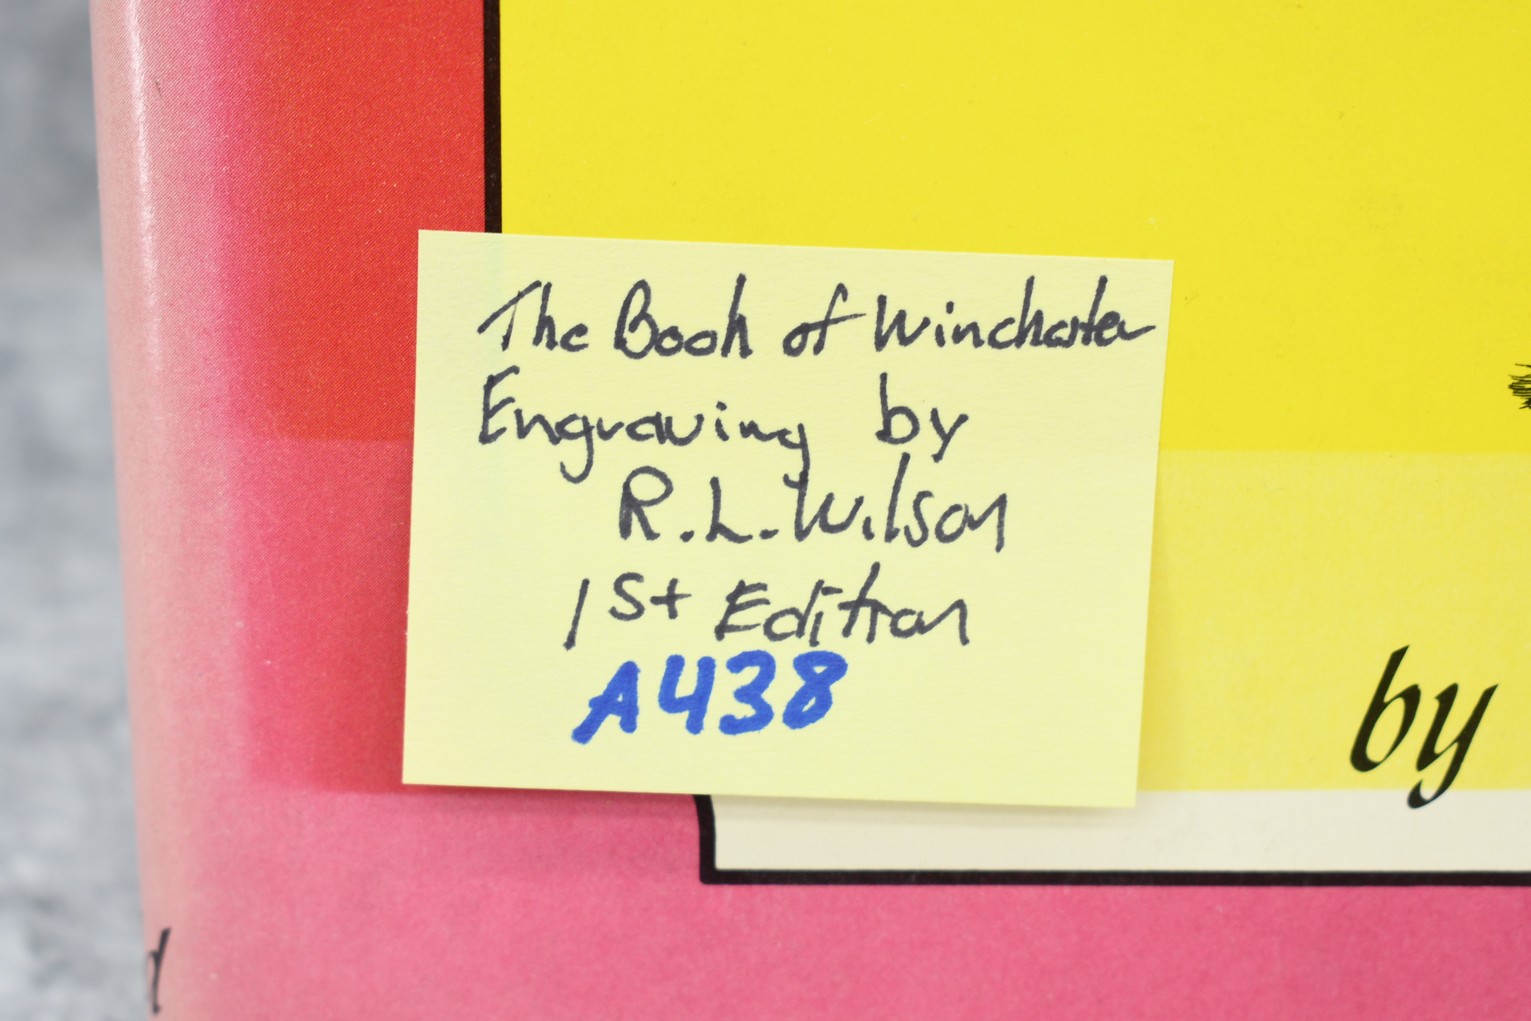 The Book of Winchester
Engraving by
R.L. Wilson
1st Edition
A438
by
d